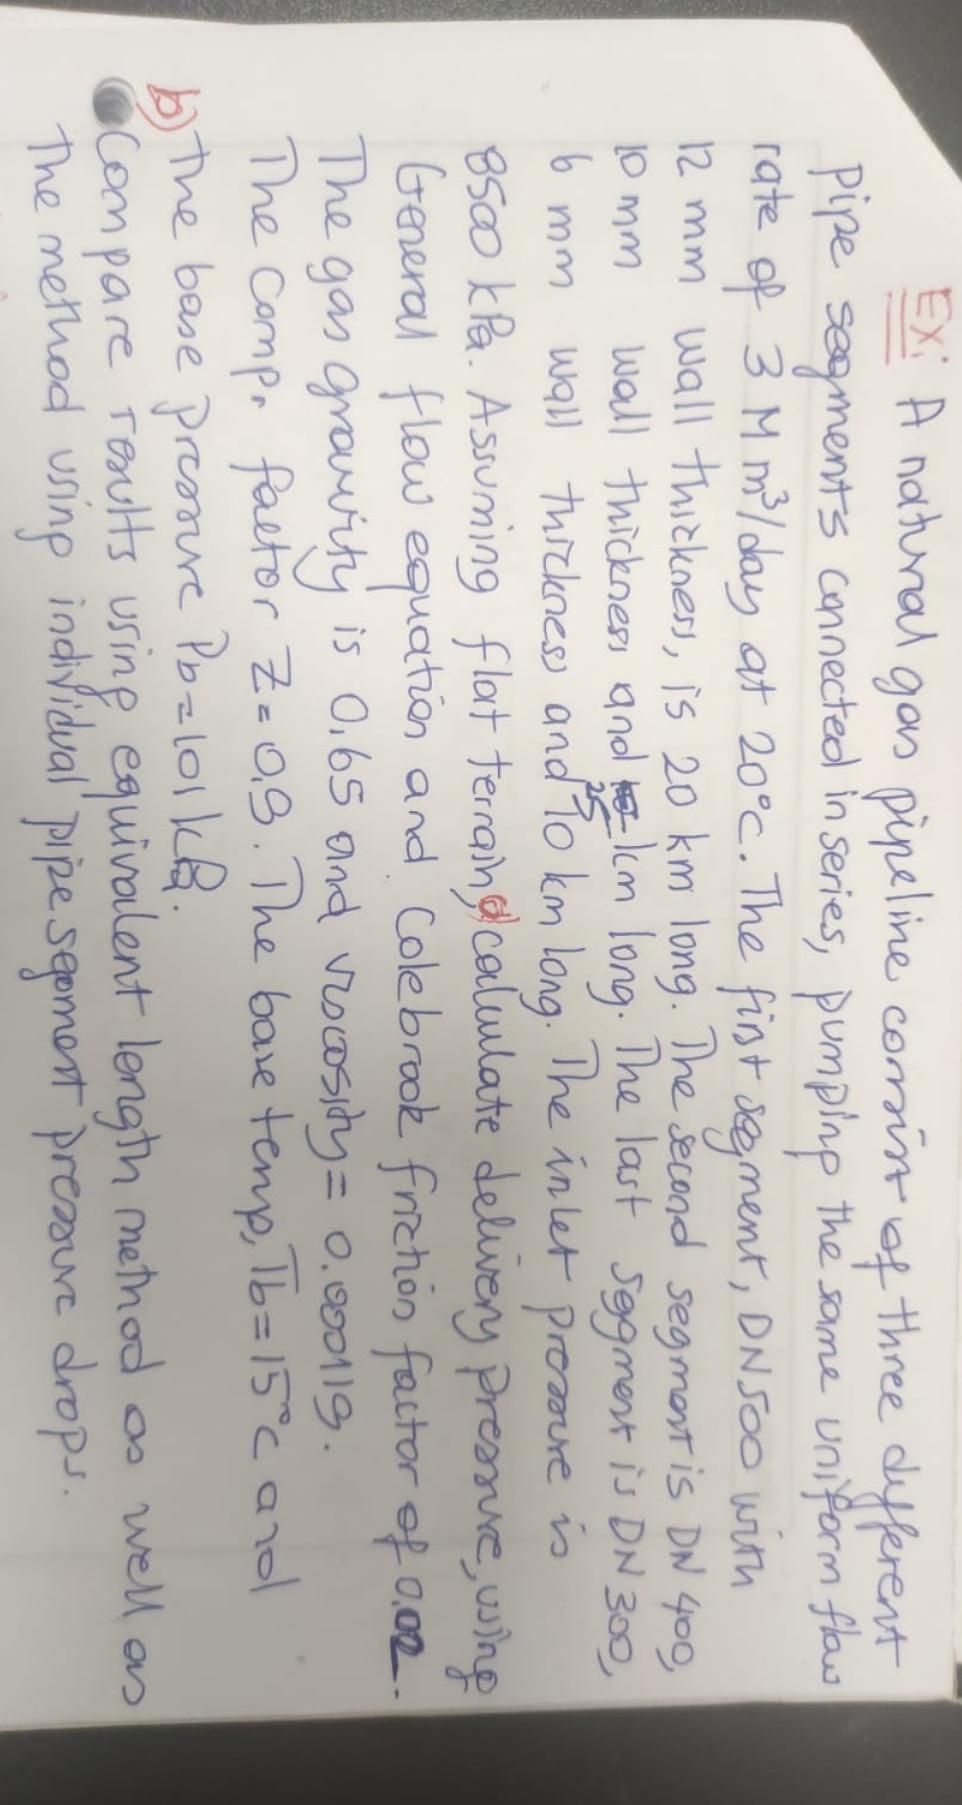 Ex: A natural gas pipeline consist of three different
pipe segments connected in series, pumping the same uniform flow
rate of 3 Mm³/day at 20°C. The first segment, DN500 with
12 mm wall thickness, is 20 km long. The second segment is DN 400,
10 mm wall thickness and 25 km long. The last segment is DN 300,
6 mm wall thickness and 10 km long. The inlet pressure is
8500 kPa. Assuming flat terrain, a) calculate delivery pressure, using
General flow equation and Colebrook friction factor of 0.02.
The gas gravity is 0,65 and viscosity = 0.000119.
The comp. factor Z=0.9. The base temp, Tb=15°C and
The base pressure Pb=101 kPa.
b) Compare results using equivalent length method as well as
The method using individual pipe segment pressure drops.